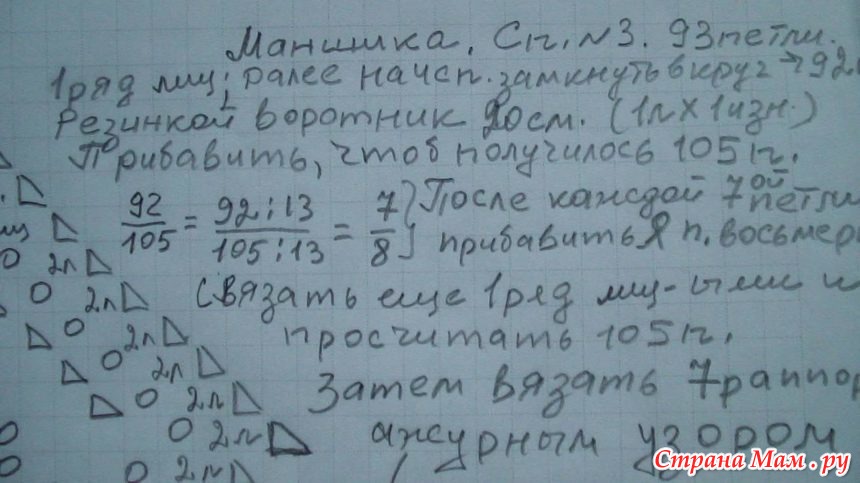 Манишка. Сп. №3. 93 петли.
1 ряд лиц; далее на чсп. замкнуть в круг → 92
Резинкой воротник 20 см. (1л х 1изн.)
Прибавить, чтоб получилось 105 п.
92/105 = 92:13/105:13 = 7/8} После каждой 7ой петли
прибавить 1 п. восьмер
(Вязать еще 1 ряд лиц-ыми и
просчитать 105 п.
Затем вязать 7 раппор
ажурным узором
лиц
2л
2л
2л
2л
2л
2л
2л
Страна Мам.ру